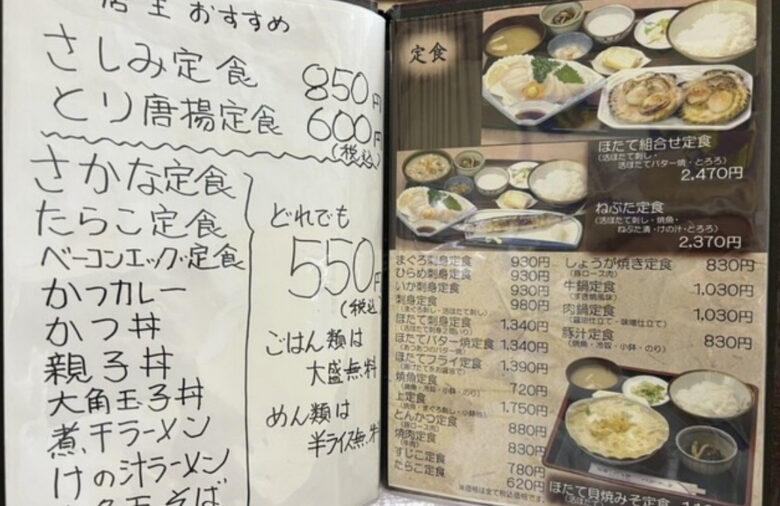 店主おすすめ
さしみ定食 850円
とり唐揚定食 600円
(税込)
さかな定食
たらこ定食
ベーコンエッグ定食
かつカレー
かつ丼
親子丼
大角玉子丼
煮干ラーメン
けの汁ラーメン
どれでも
550円
(税込)
ごはん類は
大盛無料
めん類は
半ライス無
定食
ほたて組合せ定食
(活ほたて刺し・
活ほたてバター焼・とろろ)
2,470円
ねぶた定食
(活ほたて刺し・焼魚・
ねぶた漬・けの汁・とろろ)
2,370円
まぐろ刺身定食 930円
ひらめ刺身定食 930円
いか刺身定食 930円
刺身定食 980円
(まぐろ刺し・活ほたて刺し)
ほたて刺身定食 1,340円
ほたてバター焼定食 1,340円
(あつあつのバター焼)
ほたてフライ定食 1,390円
焼魚定食 720円
(焼魚・冷奴・小鉢・のり)
上定食 1,750円
とんかつ定食 880円
(豚ロース肉)
焼肉定食 830円
すじこ定食 780円
たらこ定食 620円
※価格は全て税込価格です。
しょうが焼き定食 830円
(豚ロース肉)
牛鍋定食 1,030円
(すき焼風味)
肉鍋定食 1,030円
(醤油仕立て・味噌仕立て)
豚汁定食 830円
(焼魚・冷奴・小鉢・のり)
ほたて貝焼みそ定食